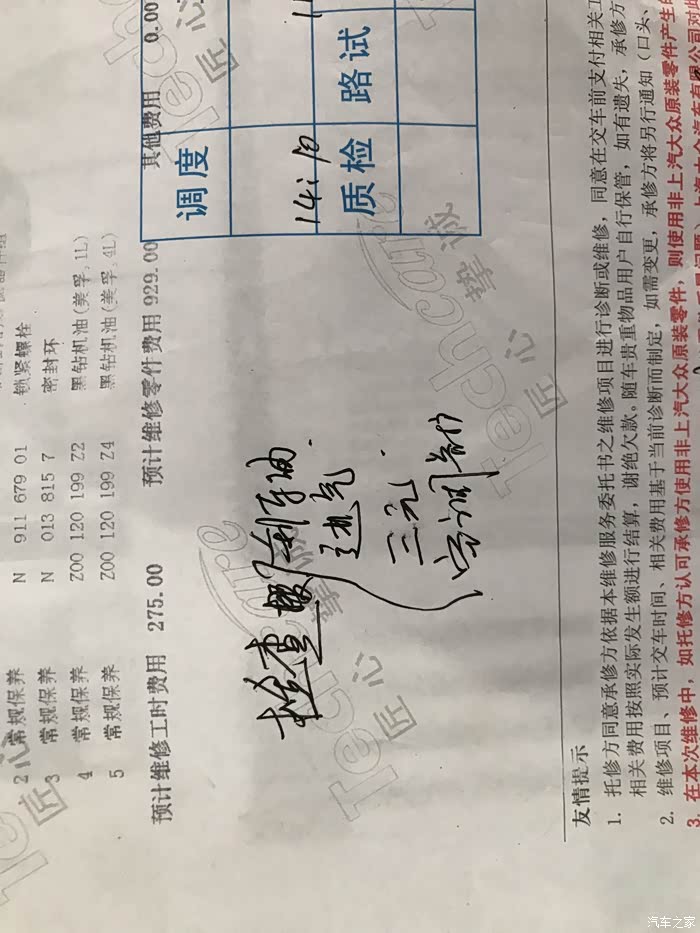 2 常规保养 N 911 679 01 锁紧螺栓
3 常规保养 N 013 815 7 密封环
4 常规保养 Z00 120 199 Z2 黑钻机油(美孚,1L)
5 常规保养 Z00 120 199 Z4 黑钻机油(美孚,4L)
预计维修工时费用 275.00 预计维修零件费用 929.00 其他费用 0.00
调度
14:10
质检 路试
检查 刹车油
进气
三元
空调
Techcare 挚诚
匠心
友情提示
1. 托修方同意承修方依据本维修服务委托书之维修项目进行诊断或维修，同意在交车前支付相关工
相关费用按照实际发生额进行结算，谢绝欠款。随车贵重物品用户自行保管，如有遗失，承修方
2. 维修项目、预计交车时间、相关费用基于当前诊断而制定，如需变更，承修方将另行通知（口头、
3. 在本次维修中，如托修方认可承修方使用非上汽大众原装零件，则使用非上汽大众原装零件产生的
汽车之家